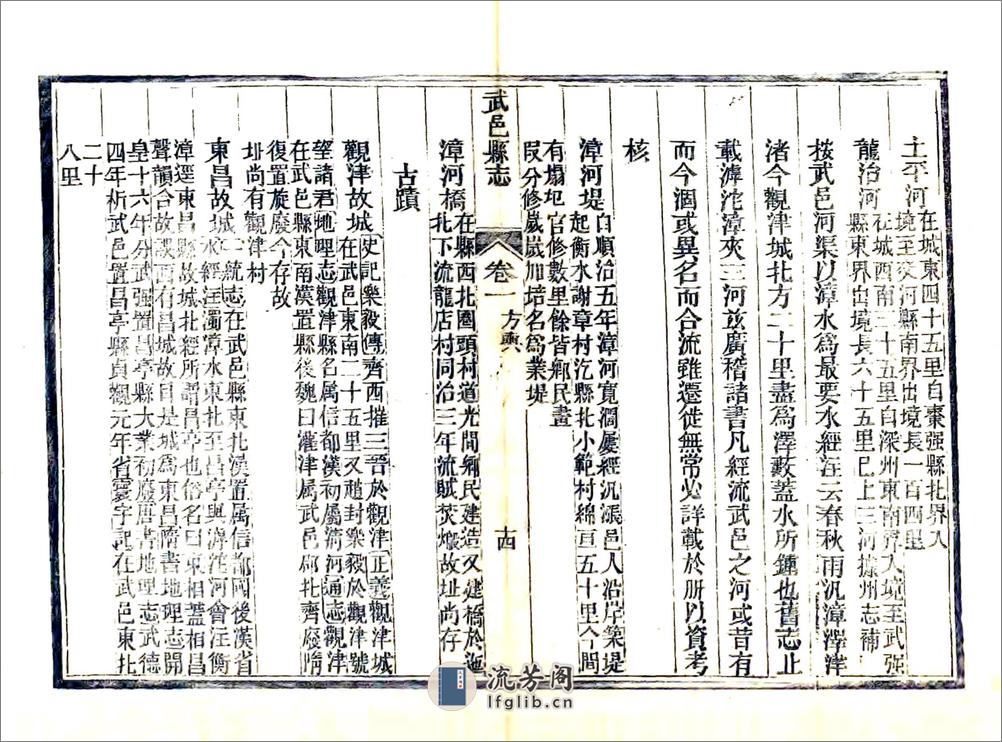 土平河在城東四十五里自棗强縣北界入
境至交河縣南界出境長一百四里
龍治河在城西南三十五里自深州東南界入境至武强
縣東界出境長六十五里已上三河據州志補
按武邑河渠以漳水為最要水經注云春秋雨汎漳澤洋
渚今觀津城北方二十里盡為澤藪蓋水所鍾也舊志止
載滹沱漳夾三河玆廣稽諸書凡經流武邑之河或昔有
而今涸或異名而合流雖遷徙無常必詳載於册以資考
核
漳河堤自順治五年漳河寬濶屢經汎漲邑人沿岸築堤
起衡水謝章村訖縣北小範村綿亘五十里今間
有塌圯官修數里餘皆鄉民畫
叚分修嵗嵗加培名為業堤
武邑縣志
卷一
方輿
十四
漳河橋在縣西北圈頭村道光間鄉民建造又建橋於迤
北下流龍店村同治三年流賊焚燬故址尚存
古蹟
觀津故城在武邑東南二十五里又趙封樂毅於觀津號
史記樂毅傳齊西摧三晉於觀津正義觀津城
望諸君地理志觀津縣名属信都漢初屬淸河通志觀津
在武邑縣東南漢置縣後魏曰灌津属武邑郡北齊廢隋
復置旋廢今存故
址尚有觀津村
東昌故城一統志在武邑縣東北漢置属信都國後漢省
水經注濁漳水東北至昌亭與滹沱河會注衡
漳逕東昌縣故城北經所謂昌亭也俗名曰東相蓋相昌
聲韻合故誤西有昌城故目是城為東昌隋書地理志開
皇十六年分武强置昌亭縣大業初廢唐書地理志武德
四年析武邑置昌亭縣貞觀元年省寰宇記在武邑東北
二十
八里
流芳阁
lfglib.cn